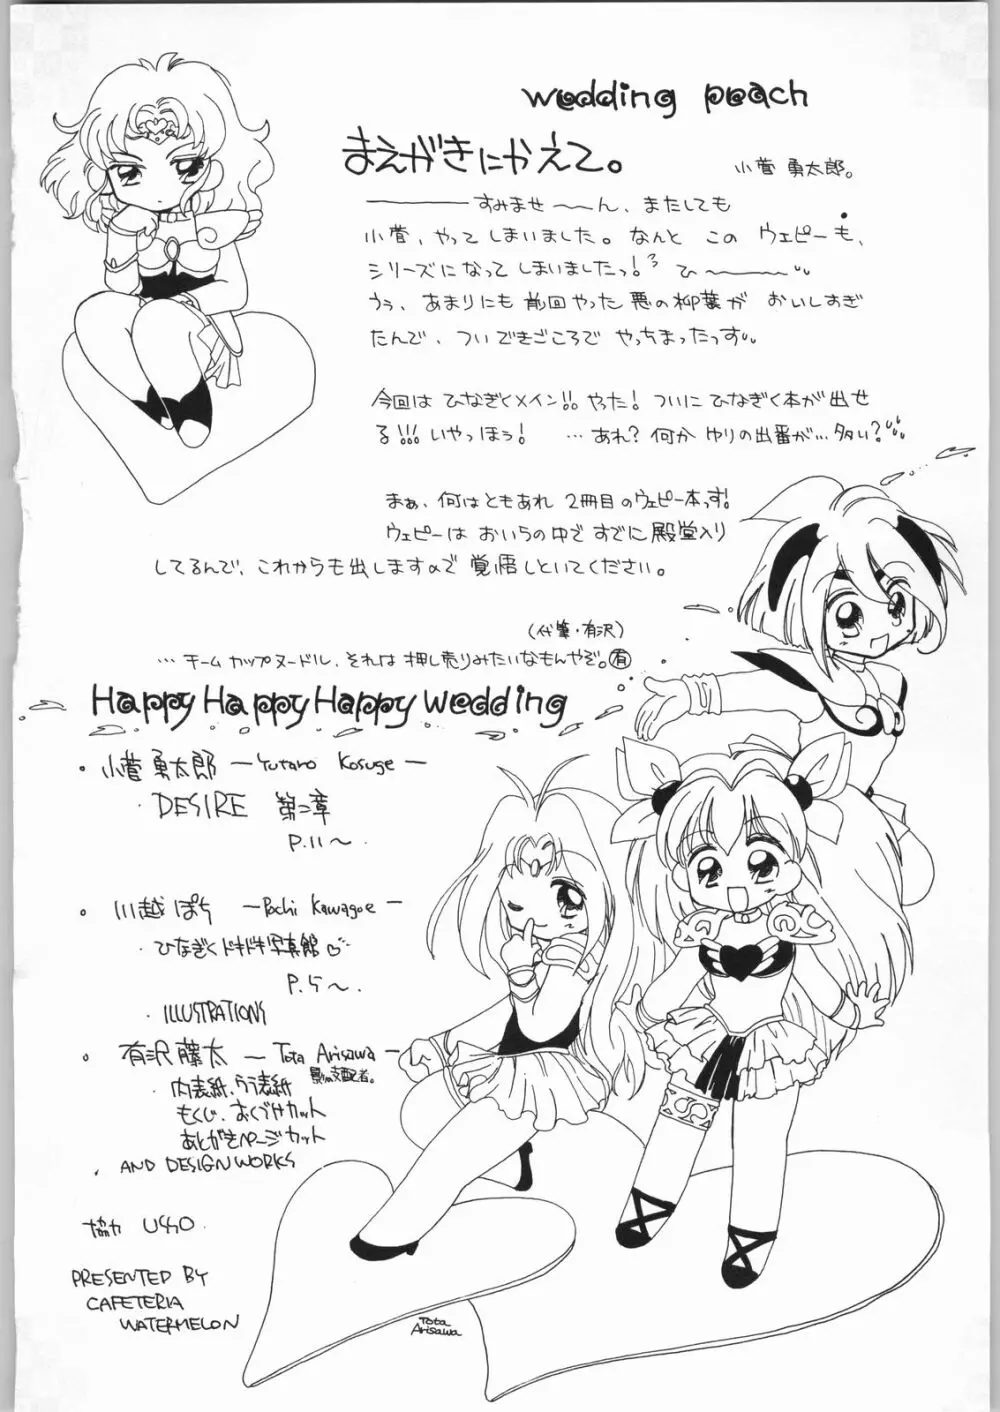 wedding peach
まえがきにかえて。
小菅 勇太郎。
――――すみませ~~ん、またしても
小菅、やってしまいました。なんと この ウェピーも、
シリーズになって しまいましたっ! ひ~~~~
うぅ、あまりにも 前回やった 悪の柳葉が おいしすぎ
たんで、ついできごころで やっちまったっす
今回は ひなぎくメイン!! やった! ついに ひなぎく本が出せ
る!!! いやっほぅ! …あれ? 何か ゆりの出番が…多い?
まぁ、何はともあれ 2冊目のウェピー本っす!
ウェピーは おいらの中で すでに 殿堂入り
してるんで、これからも出しますので 覚悟しといてください。
(代筆・有沢)
…チーム カップヌードル、それは 押し売りみたいなもんやぞ。㊒
Happy Happy Happy wedding
・小菅 勇太郎 ―Yutaro Kosuge―
・DESIRE 第二章
P.11~.
・川越 ぽち ―Pochi Kawagoe―
・ひなぎく ドキドキ写真館♡
P.5~.
・ILLUSTRATIONS
・有沢 藤太 ―Tota Arisawa―
影の支配者。
・内表紙、うら表紙
もくじ、おくづけカット
あとがきページカット
・AND DESIGN WORKS
協力 USO.
PRESENTED BY
CAFETERIA
WATERMELON
Tota
Arisawa